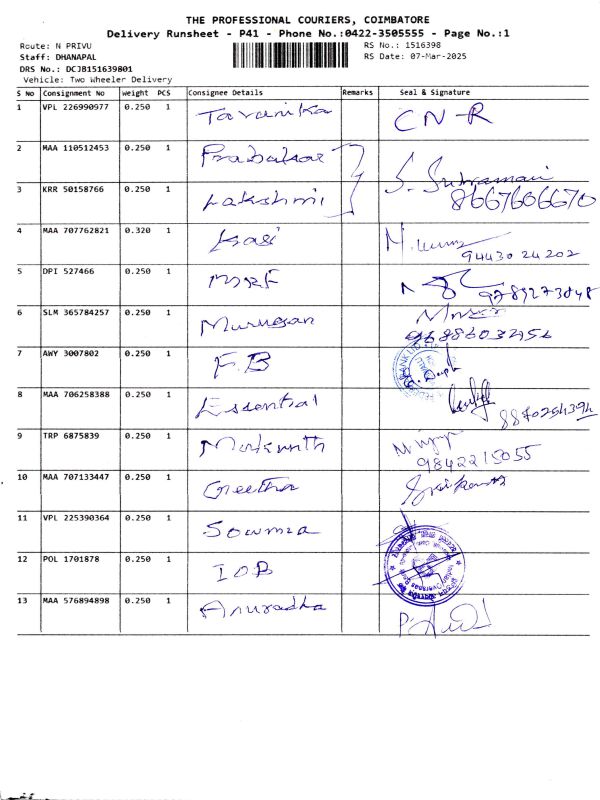 THE PROFESSIONAL COURIERS, COIMBATORE
Delivery Runsheet - P41 - Phone No.:0422-3505555 - Page No.:1
Route: N PRIVU
RS No.: 1516398
Staff: DHANAPAL
RS Date: 07-Mar-2025
DRS No.: DCJB151639801
Vehicle: Two Wheeler Delivery
S No Consignment No Weight PCS Consignee Details Remarks Seal & Signature
1 VPL 226990977 0.250 1 Taranika CN-R
2 MAA 110512453 0.250 1 Prabakar
3 KRR 50158766 0.250 1 Lakshmi S. Subramani
8667606670
4 MAA 707762821 0.320 1 Kasi
9443024202
5 DPI 527466 0.250 1 MRF
6 SLM 365784257 0.250 1 Murugan
7 AWY 3007802 0.250 1 F.B
8 MAA 706258388 0.250 1 Essential
9 TRP 6875839 0.250 1
9842215055
10 MAA 707133447 0.250 1 Geetha
11 VPL 225390364 0.250 1 Sowmia
12 POL 1701878 0.250 1 IOB
13 MAA 576894898 0.250 1 Anuradha